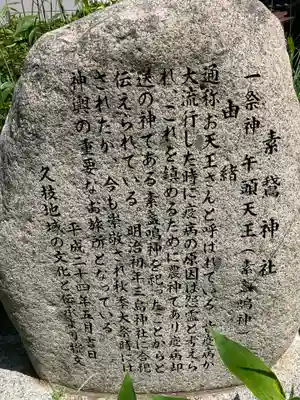 素鵞神社
一祭神 午頭天王(素盞鳴神
由緒
通称お天王さんと呼ばれている
疫病が
大流行した時に疫病の原因は怨霊と考えら
れ、これを鎮めるために農神であり疫病却
送の神である素盞鳴神を祀ったことからと
伝えられている。明治初年三島神社に合祀
されたが、今も崇敬され秋季大祭時には
神輿の重要なお旅所となっている
平成二十四年五月吉日
久枝地域の文化と伝承より抜文